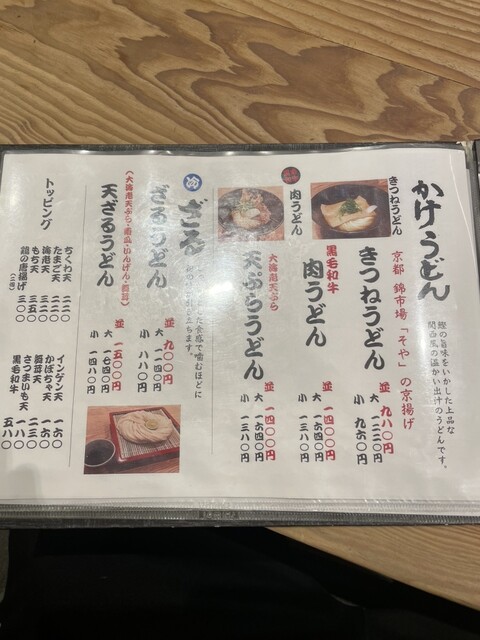 かけうどん
鰹の旨味をいかした上品な
関西風の温かい出汁のうどんです。
きつねうどん
京都 錦市場「そや」の京揚げ
きつねうどん
並 九八〇円
大 一二二〇円
小 九六〇円
肉うどん
黒毛和牛
肉うどん
並 一四〇〇円
大 一六四〇円
小 一三八〇円
大海老天ぷら
天ぷらうどん
並 一四〇〇円
大 一六四〇円
小 一三八〇円
冷
ざる
食感で噛むほどに
立ちます。
ざるうどん
並 九〇〇円
大 一一四〇円
小 八八〇円
天ざるうどん
並 一五〇〇円
大 一七四〇円
小 一四八〇円
トッピング
ちくわ天 二二〇
たまご天 二二〇
海老天 三五〇
もち天 三五〇
鶏の唐揚げ(二個) 三〇〇
インゲン天 一六〇
かぼちゃ天 一六〇
舞茸天 二三〇
さつまいも天 一六〇
黒毛和牛 五八〇